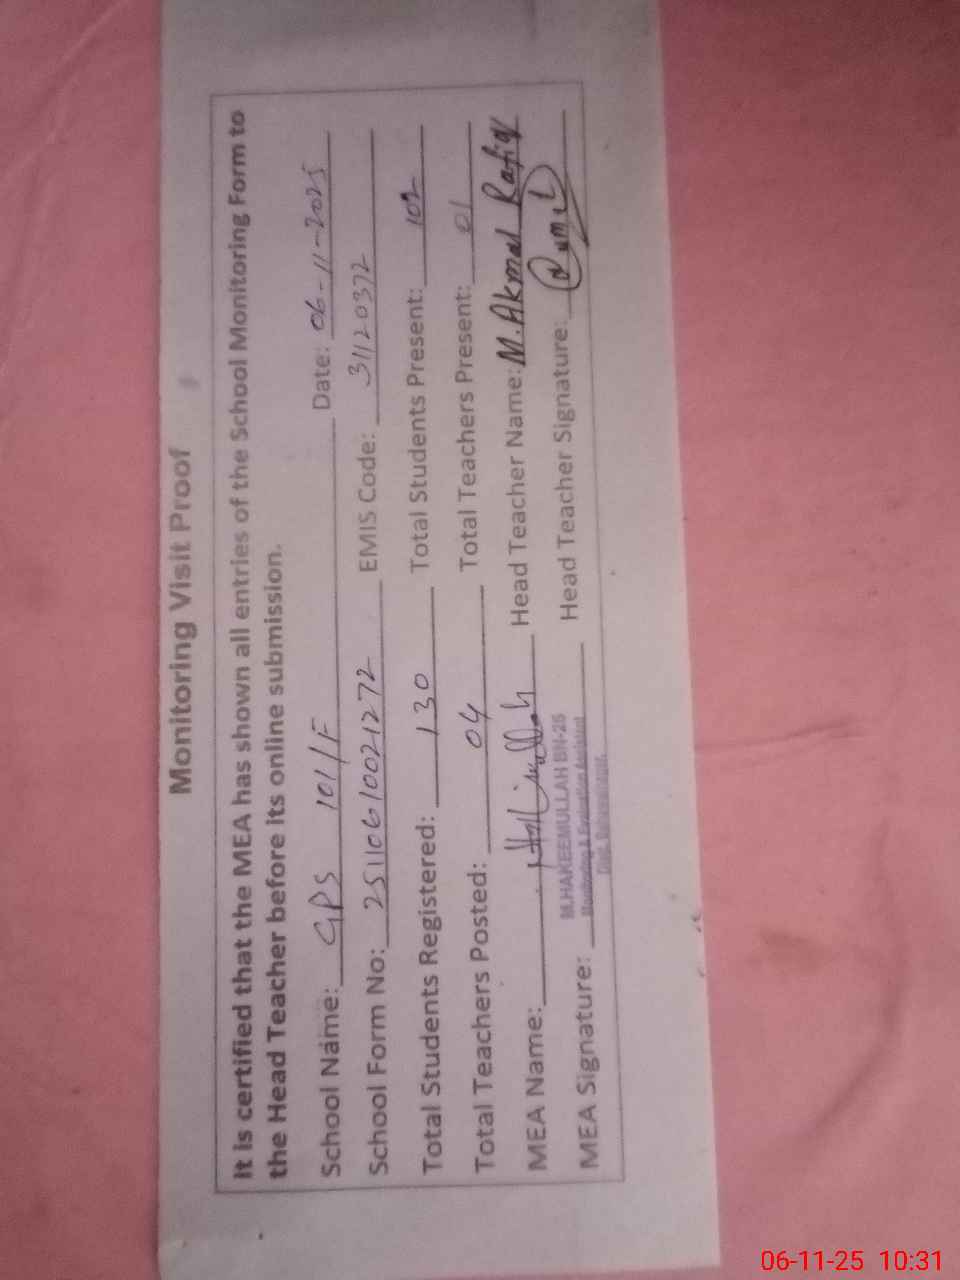 Monitoring Visit Proof
It is certified that the MEA has shown all entries of the School Monitoring Form to
the Head Teacher before its online submission.
School Name: GPS 101/F Date: 06-11-2025
School Form No: 25110610021272 EMIS Code: 31120372
Total Students Registered: 130 Total Students Present: 102
Total Teachers Posted: 04 Total Teachers Present: 01
MEA Name: Head Teacher Name: M. Akmal Rafiq
M.HAKEEMULLAH BN-25
MEA Signature: Monitoring & Evaluation Assistant Head Teacher Signature:
06-11-25 10:31